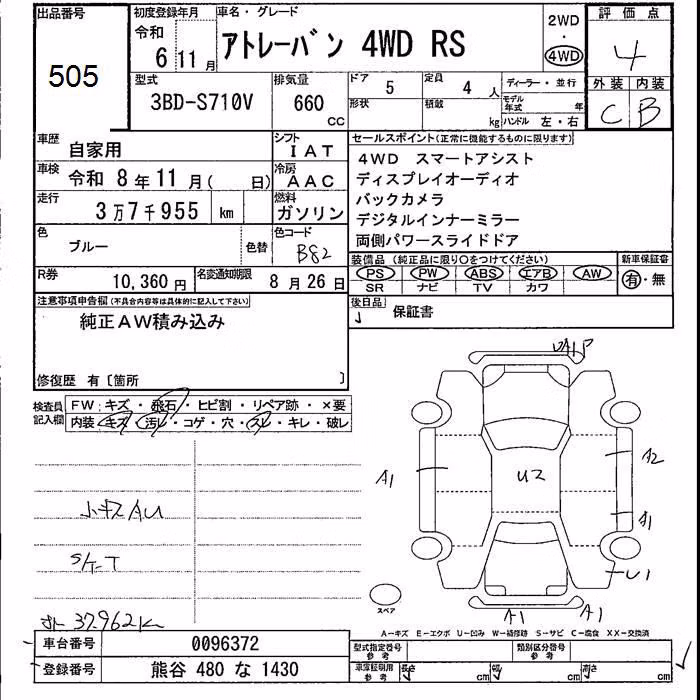 出品番号
505
初度登録年月
令和
6 11月
車名・グレード
アトレーバン 4WD RS
2WD
・
4WD
評価点
4
外装 内装
C B
型式
3BD-S710V
排気量
660
cc
ドア
5
定員
4 人
形状
積載
kg
ディーラー・並行
モデル年式 年
ハンドル 左・右
車歴
自家用
シフト
IAT
車検
令和 8年11月( 日)
冷房
AAC
走行
3万7千955 km
燃料
ガソリン
色
ブルー
色替
色コード
B82
R券
10,360円
名変通知期限
8月26日
セールスポイント(正常に機能するものに限ります)
4WD スマートアシスト
ディスプレイオーディオ
バックカメラ
デジタルインナーミラー
両側パワースライドドア
装備品(純正品に限り○をつけてください)
新車保証書
PS PW ABS エアB AW
SR ナビ TV カワ
有・無
後日品
保証書
注意事項申告欄(不具合内容等は具体的に記入して下さい)
純正AW積み込み
修復歴 有〔箇所 〕
検査員
記入欄
FW:キズ・飛石・ヒビ割・リペア跡・×要
内装・キズ・汚レ・コゲ・穴・スレ・キレ・破レ
A1
U2
A2
A1
U1
A1
A1
スペア
A-キズ E-エクボ U-凹み W-補修跡 S-サビ C-腐食 XX-交換済
37,962K
車台番号
0096372
登録番号
熊谷 480 な 1430
型式指定番号
参考
類別区分番号
参考
車庫証明用
参考
長さ cm
幅 cm
高さ cm